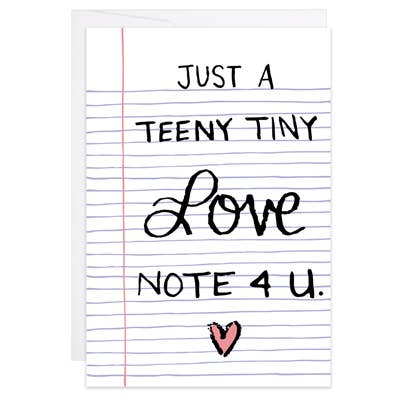 JUST A
TEENY TINY
Love
NOTE 4 U.